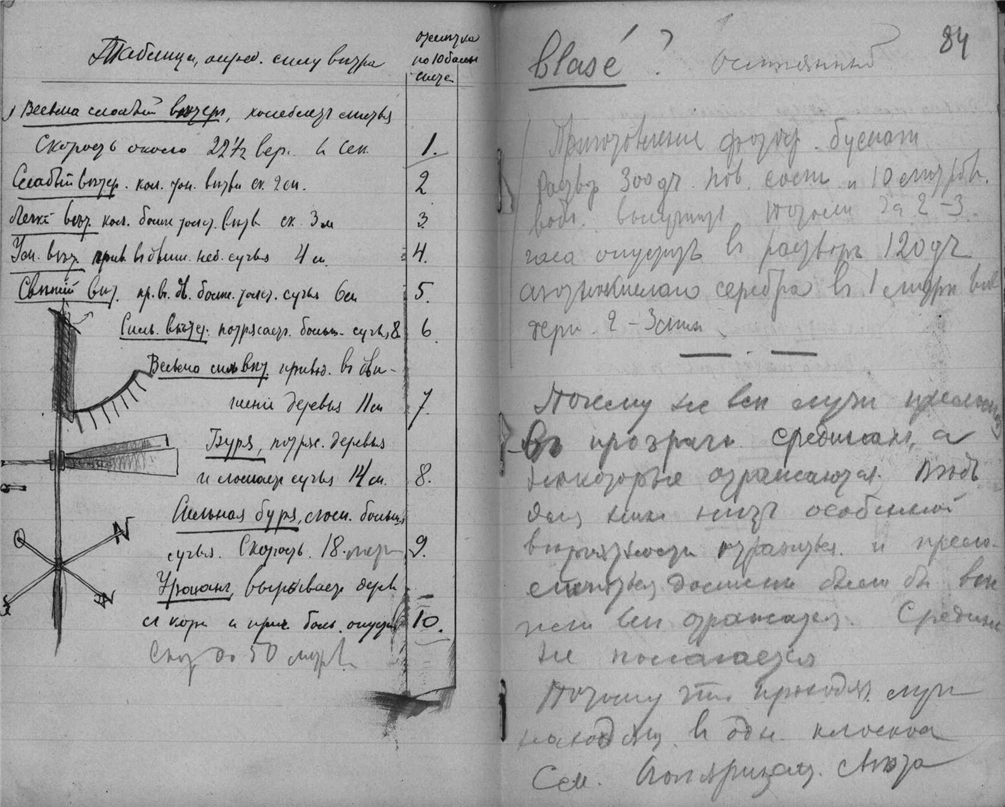 Таблица, опред. силу вѣтра
отмѣтка
по 10 бальн
системѣ
1 Весьма слабый вѣтеръ, колеблетъ листья
Скорость около 2 1/2 вер. в сек. 1.
Слабый вѣтер. кол. тон. вѣтви ск. 2 м. 2
Легкій вѣт. кол. болѣе толст. вѣтв. ск. 3 м 3.
вѣт. прив. в движ. неб. сучья 4 м. 4.
Свѣжій вѣт. пр. в дв. болѣе толст. сучья 6 м 5.
Силь. вѣтер. потрясает. больш. сучья 8 6
Весьма сил вѣт. привод. въ дви-
женіе деревья 11 м 7
Буря, потряс. деревья
и ломает сучья 14 м. 8.
Сильная буря, слом. больш.
сучья. Скорость. 18. метр 9.
Ураганъ, вырывает дерев
с корн и прич. больш. опустош 10.
Скор до 50 метр.
N
84
blasé ?
Приготовленіе фотогр. бумаги
Раствор 300 гр. пов. соли и 10 литров.
воды. высушить потомъ за 2-3.
часа опустить в растворъ 120 гр
азотнокислаго серебра въ 1 литрѣ вод
держ. 2-3 мин
Почему не всѣ лучи преломл
въ прозрачн срединах, а
нѣкоторые отражаются. Вѣдь
для них нѣтъ особенной
отразиться и прело-
миться должны были бы всѣ
или всѣ отражатся. Средины
не полагается
Потому что проходят лучи
находящ. в одн. плоскос
См. Поляризац. свѣта